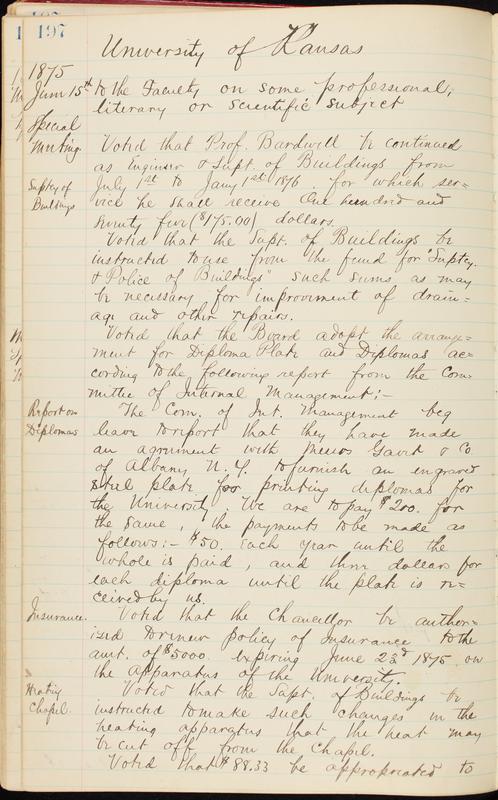 197
University of Kansas
1875
June 15th to the Faculty on some professional,
literary or scientific subject
Special
Meeting
Voted that Prof. Bardwell be continued
as Engineer & Supt. of Buildings from
Suptcy of
Buildings
July 1st to Jany 1st 1876 for which ser=
vice he shall receive One hundred and
seventy five ($175.00) dollars.
Voted that the Supt. of Buildings be
instructed to use from the fund for "Suptcy.
& Police of Buildings" such sums as may
be necessary for improvement of drain=
age and other repairs.
Voted that the Board adopt the arrange=
ment for Diploma Plate and Diplomas ac=
cording to the following report from the Com=
mittee of Internal Management:-
Report on
Diplomas
The Com. of Int. Management beg
leave to report that they have made
an agreement with Messrs Gavit & Co
of Albany N.Y. to furnish an engraved
steel plate for printing diplomas for
the University. We are to pay $200. for
the same, the payments to be made as
follows:- $50. each year until the
whole is paid, and three dollars for
each diploma until the plate is re=
ceived by us.
Insurance.
Voted that the Chancellor be author=
ized to renew policy of Insurance to the
amt. of $5000. expiring June 23d 1875 on
the apparatus of the University.
Heating
Chapel.
Voted that the Supt. of Buildings be
instructed to make such changes in the
heating apparatus that the heat may
be cut off from the Chapel.
Voted that $88.33 be appropriated to